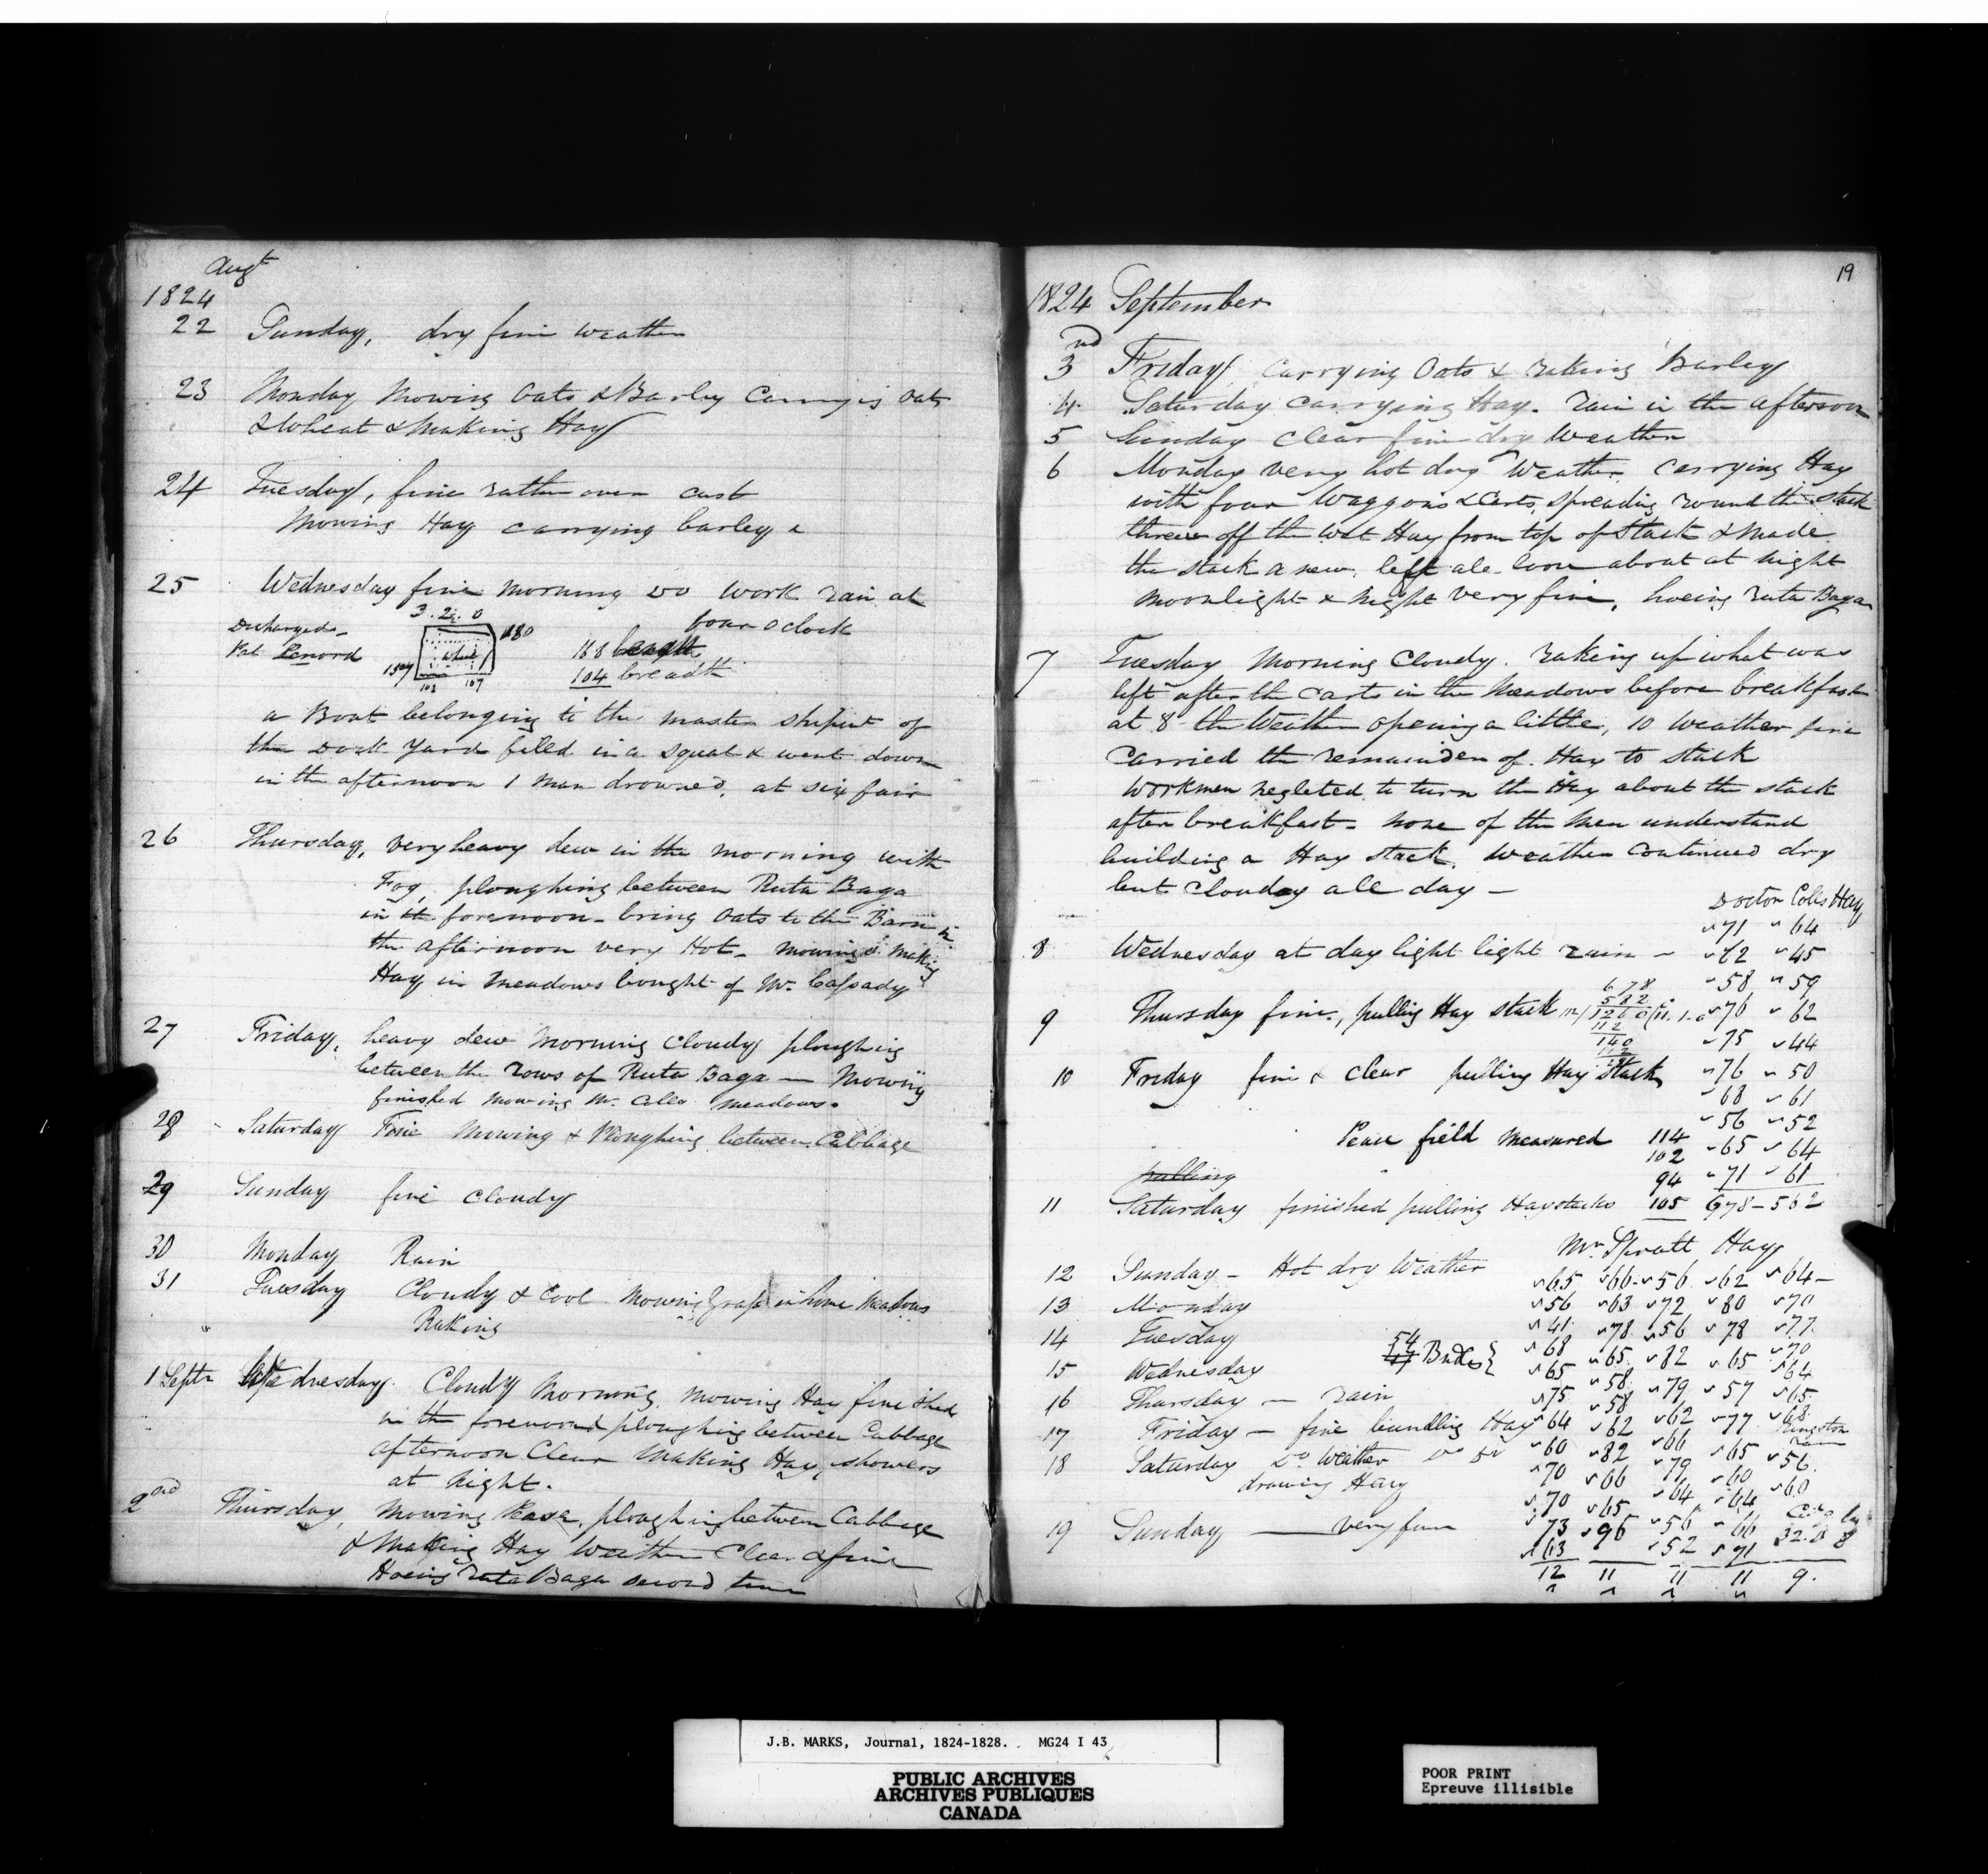 18
Augt
1824
22 Sunday, dry fine weather
23 Monday Mowing Oats & Barley Carrying Oats
& Wheat & Making Hay
24 Tuesday, fine rather over cast
Mowing Hay carrying barley &
25 Wednesday fine morning do work rain at
four o clock
Discharged
Pat Lenord
3. 2. 0
180
157
102 107
188 length
104 breadth
a Boat belonging to the master shipwt of
the Dock Yard filled in a squal & went down
in the afternoon 1 man drowned. at six fair
26 Thursday, very heavy dew in the morning with
Fog, ploughing between Ruta Baga
in the forenoon - bring Oats to the Barn in
the afternoon very Hot - mowing & making
Hay in meadows bought of Mr. Cassady
27 Friday, heavy dew Morning Cloudy ploughing
between the rows of Ruta Baga — Mowing
finished mowing Mr. Coles meadows.
28 Saturday Fine Mowing & Ploughing between Cabbage
29 Sunday fine cloudy
30 Monday Rain
31 Tuesday Cloudy & Cool Mowing Grass in home Meadows
Raking
1 Septr Wednesday. Cloudy Morning, mowing Hay finished
in the forenoon ploughing between Cabbage
afternoon Clear Making Hay, showers
at night.
2nd Thursday, Mowing Pease, ploughing between Cabbage
& Making Hay Weather Clear & fine
Hoeing Ruta Baga second time
19
1824 September
3 Friday Carrying Oats & raking Barley
4 Saturday Carrying Hay. rain in the afternoon
5 Sunday Clear fine dry Weather
6 Monday very hot dry Weather. Carrying Hay
with four Waggons & Carts, spreading round the stack
threw off the wet Hay from top of Stack & Made
the stack a new, left ale loose about at night
moonlight & night very fine, hoeing Ruta Baga
7 Tuesday Morning Cloudy. raking up what was
left after the Carts in the Meadows before breakfast
at 8 the Weather opening a little, 10 Weather fine
Carried the remainder of Hay to stack
Workmen negleted to turn the Hay about the stack
after breakfast - none of the Men understand
building a Hay stack. Weather Continued dry
but Clouday all day —
Doctor Coles Hay
71 64
8 Wednesday at day light light rain — 72 45
58 59
678
582
9 Thursday fine, pulling Hay stack 112/1260(11.1.0 76 62
112
140
112
75 44
10 Friday fine & Clear pulling Hay Stack 76 50
68 61
56 52
Pease field Measured 114 65 64
102
pulling 94 71 61
11 Saturday finished pulling Haystacks 105 678 - 562
Mr Spratt Hay
12 Sunday - Hot dry Weather 65 66 56 62 64
13 Monday 56 63 72 80 70
14 Tuesday 41 78 56 78 77
54 Bndles 68 65 82 65 70
15 Wednesday 65 58 79 57 64
16 Thursday — rain 75 58 62 77 65
17 Friday — fine bundling Hay 64 62 66 65 68
Kingston
18 Saturday Do Weather Do Do 60 82 79 60 56
drawing Hay 70 66 64 64 60
70 65 56 66
19 Sunday — very fine 73 96 52 71 32.0 8
63
12 11 11 11 9.
J.B. MARKS, Journal, 1824-1828. MG24 I 43
PUBLIC ARCHIVES
ARCHIVES PUBLIQUES
CANADA
POOR PRINT
Epreuve illisible